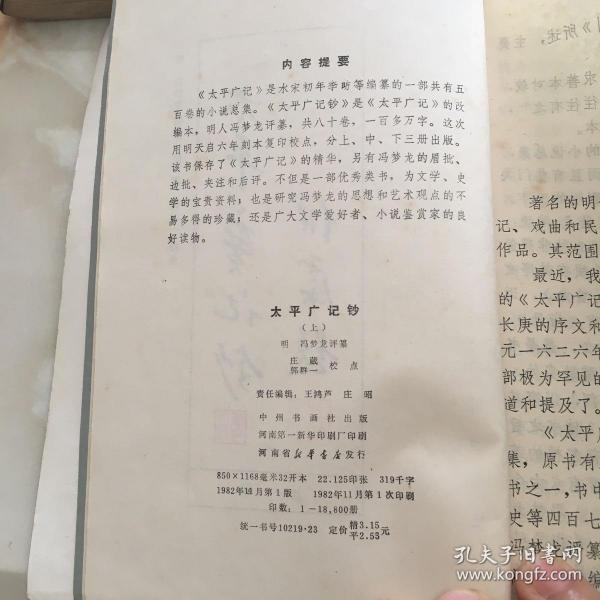 内容提要
《太平广记》是水宋初年李昉等编纂的一部共有五
百卷的小说总集。《太平广记钞》是《太平广记》的改
编本，明人冯梦龙评纂，共八十卷，一百多万字。这次
用明天启六年刻本复印校点，分上、中、下三册出版。
该书保存了《太平广记》的精华，另有冯梦龙的眉批、
边批、夹注和后评。不但是一部优秀类书，为文学、史
学的宝贵资料；也是研究冯梦龙的思想和艺术观点的不
易多得的珍藏；还是广大文学爱好者、小说鉴赏家的良
好读物。
太平广记钞
（上）
明 冯梦龙评纂
庄葳
郭群一 校点
责任编辑：王鸿芦 庄昭
中州书画社出版
河南第一新华印刷厂印刷
河南省新华书店发行
850×1168毫米32开本 22.125印张 319千字
1982年11月第1版 1982年11月第1次印刷
印数：1－18,800册
统一书号10219·23 定价精3.15元
平2.53
》所述，
主要
著名的明
记、戏曲和民
作品。其范围
最近，我
的《太平广记
长庚的序文和
元一六二六年
部极为罕见的
道和提及了。
《太平广
集，原书有
书之一，书中
史等四百七
冯梦龙评纂
编
孔夫子旧书网
www.kongfz.com